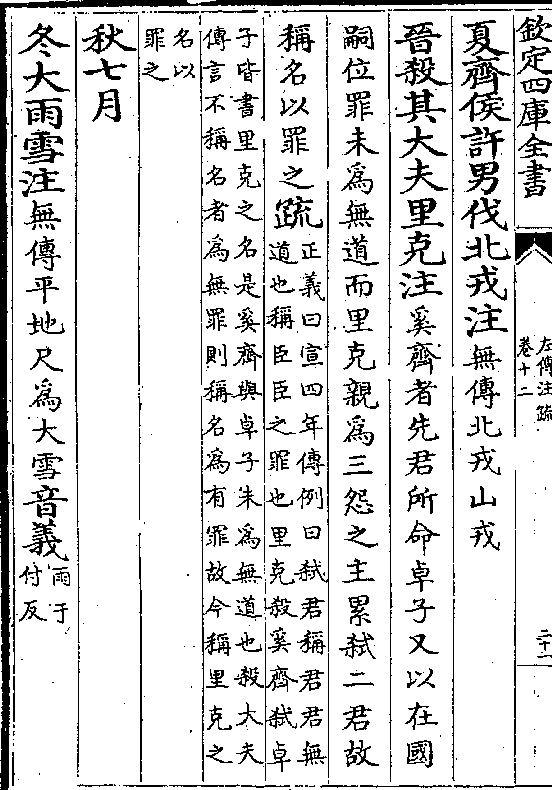 欽定四庫全書
左傳注疏
卷十二
二十一
夏齊侯許男伐北戎注無傳北戎山戎
晉殺其大夫里克注奚齊者先君所命卓子又以在國
嗣位罪未爲無道而里克親爲三怨之主累弑二君故
稱名以罪之疏
正義曰宣四年傳例曰弑君稱君君無
道也稱臣臣之罪也里克殺奚齊弑卓
子皆書里克之名是奚齊與卓子未爲無道也殺大夫
傳言不稱名者爲無罪則稱名爲有罪故今稱里克之
名以
罪之
秋七月
冬大雨雪注無傳平地尺爲大雪音義
雨于
付反